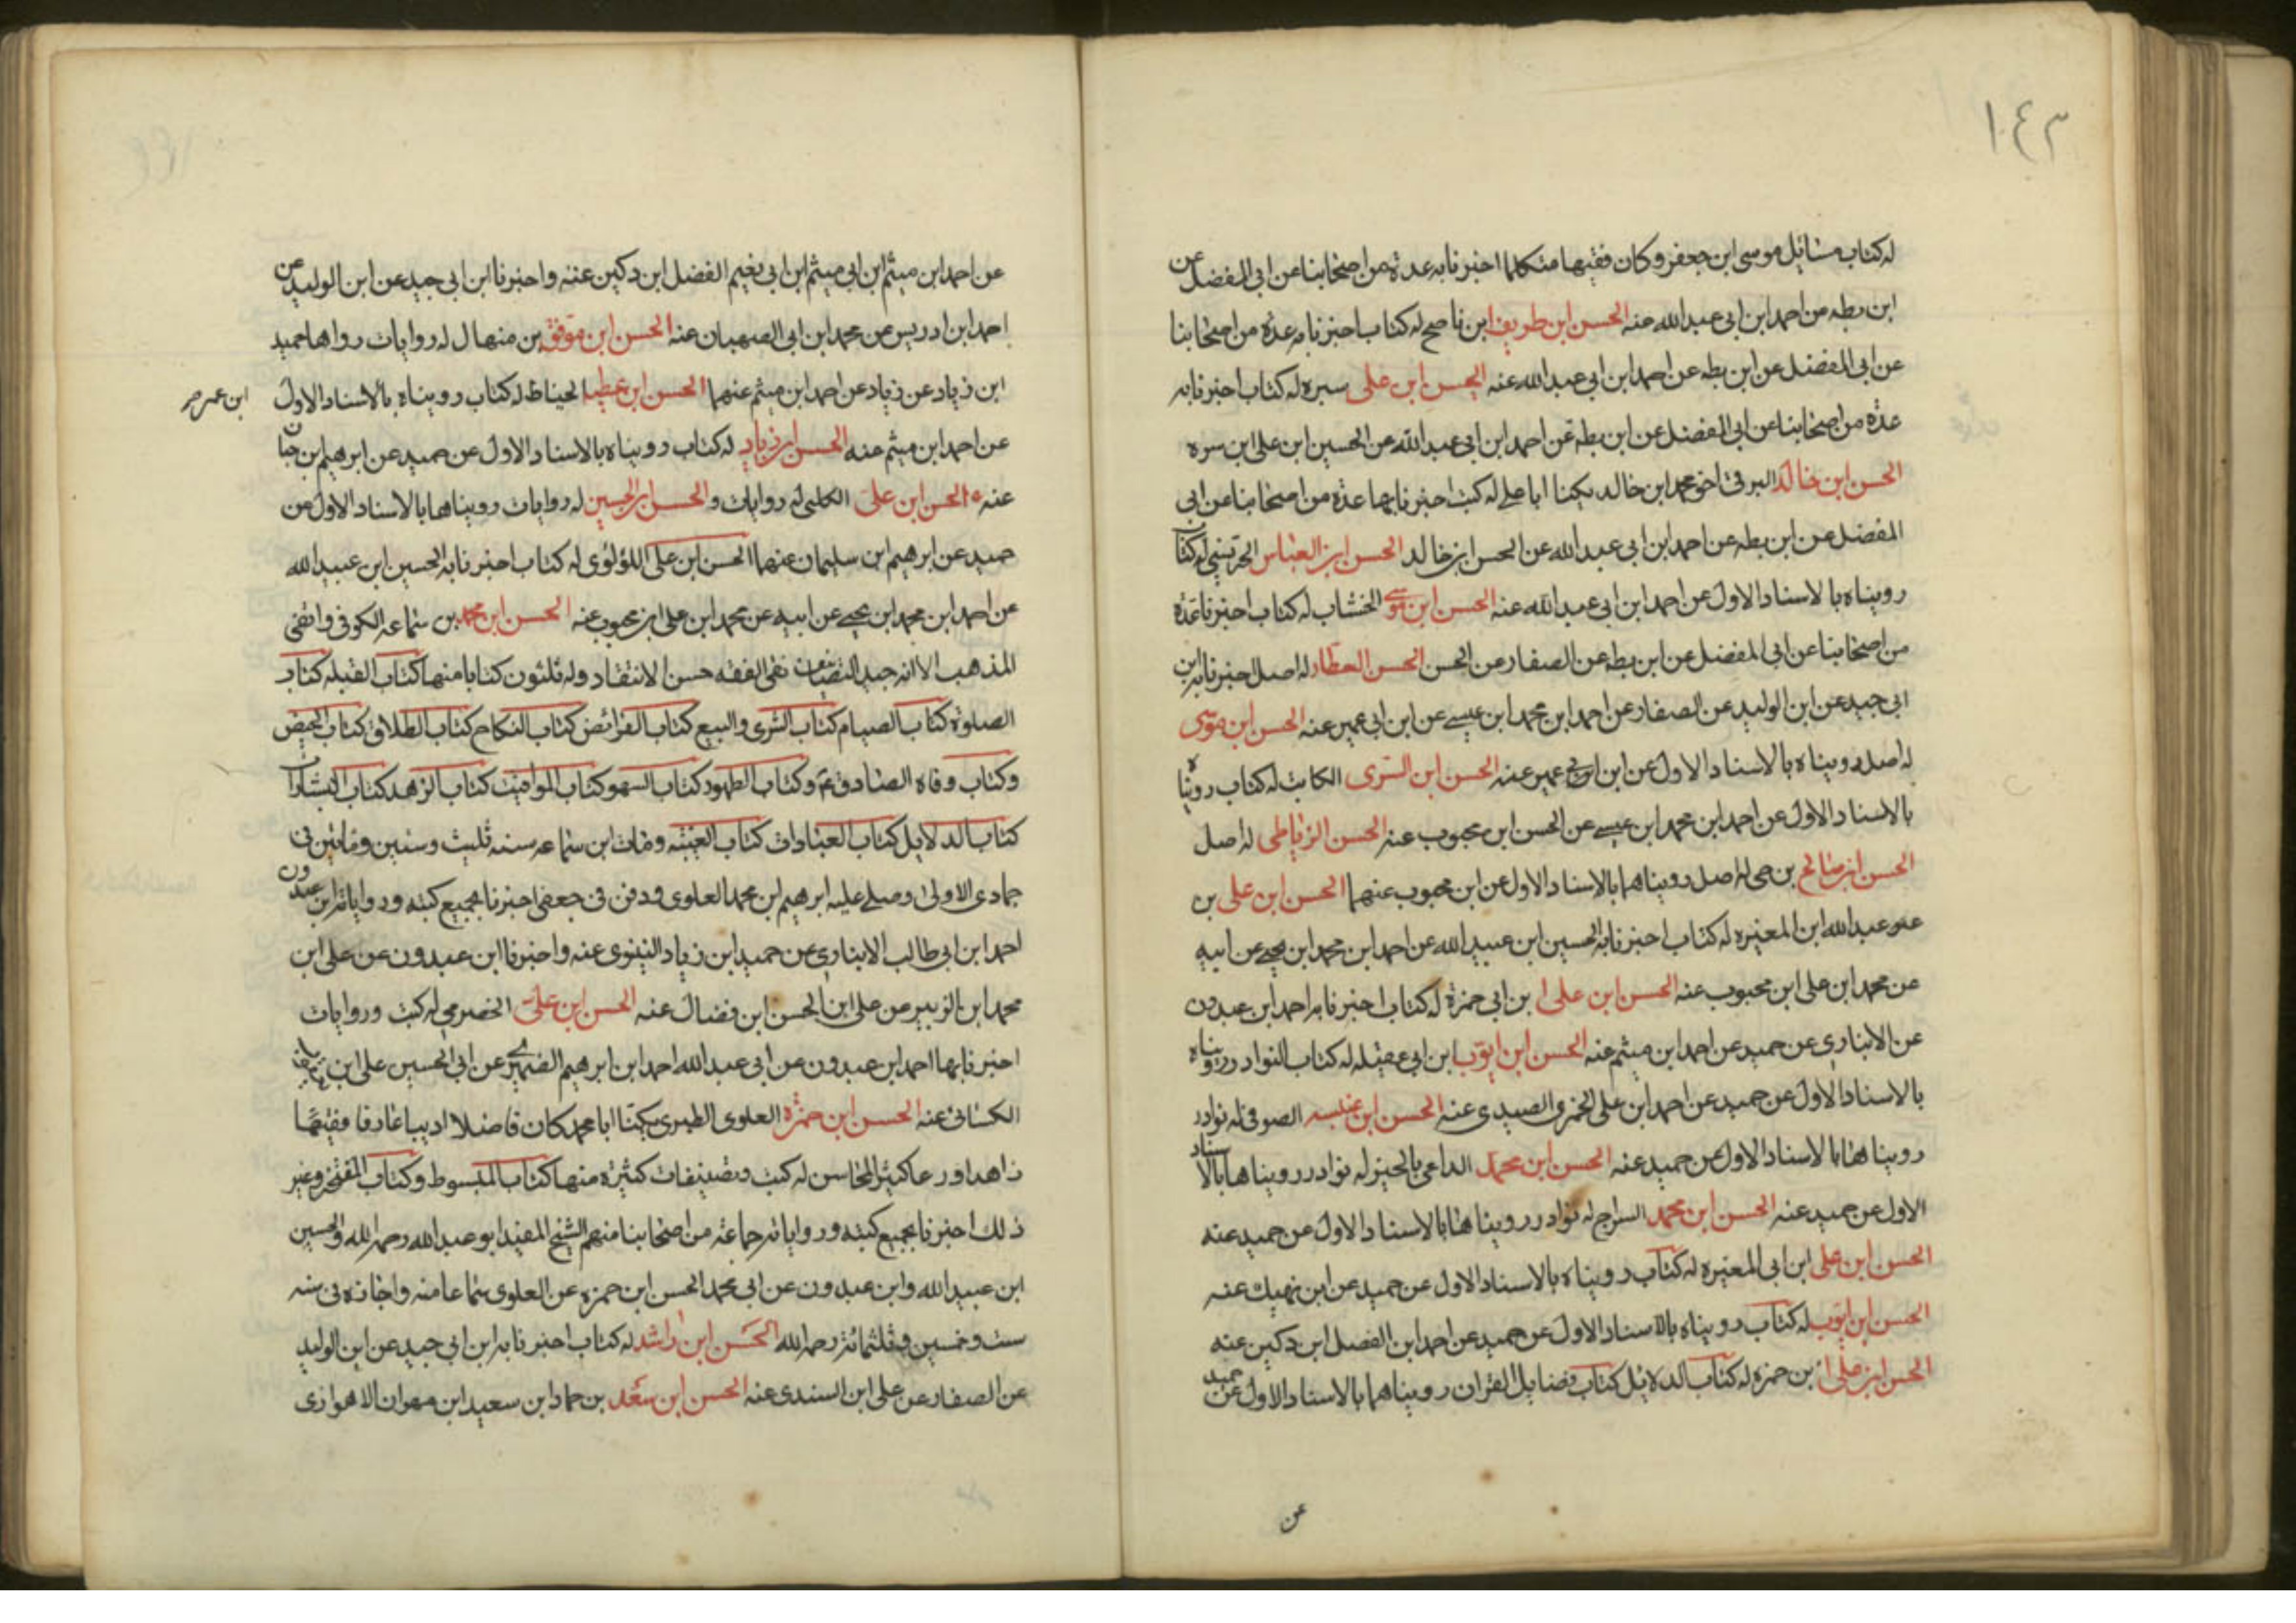 ١٤٣
له كتاب مسائل موسى ابن جعفر وكان فقيها متكلما اخبرنا به عدة من اصحابنا عن ابى المفضل عن
ابن بطه عن احمد ابن ابى عبدالله عنه الحسن ابن ظريف ابن ناصح له كتاب اخبرنا به عدة من اصحابنا
عن ابى المفضل عن ابن بطه عن احمد ابن ابى عبدالله عنه الحسن ابن على سبره له كتاب اخبرنا به
عدة من اصحابنا عن ابى المفضل عن ابن بطه عن احمد ابن ابى عبدالله عن الحسين ابن على ابن سبره
الحسن ابن خالد البرقى اخو محمد ابن خالد يكنا ابا على له كتب اخبرنا بها عدة من اصحابنا عن ابى
المفضل عن ابن بطه عن احمد ابن ابى عبدالله عن الحسن ابن خالد الحسن ابن العباس له كتاب
رويناه بالاسناد الاول عن احمد ابن ابى عبدالله عنه الحسن ابن موسى الخشاب له كتاب اخبرنا عدة
من اصحابنا عن ابى المفضل عن ابن بطه عن الصفار عن الحسن الحسن العطار له اصل اخبرنا به ابن
ابى جيد عن ابن الوليد عن الصفار عن احمد ابن محمد ابن عيسى عن ابن ابى عمير عنه الحسن ابن موسى
له اصل رويناه بالاسناد الاول عن ابن ابى عمير عنه الحسن ابن السرى الكاتب له كتاب رويناه
بالاسناد الاول عن احمد ابن محمد ابن عيسى عن الحسن ابن محبوب عنه الحسن الرباطى له اصل
الحسن ابن صالح بن حى له اصل رويناهما بالاسناد الاول عن ابن محبوب عنهما الحسن ابن على بن
عبدالله ابن المغيره له كتاب اخبرنا به الحسين ابن عبيدالله عن احمد ابن محمد ابن يحيى عن ابيه
عن محمد ابن على ابن محبوب عنه الحسن ابن على ابن ابى حمزة له كتاب اخبرنا به احمد ابن عبدون
عن الانبارى عن حميد عن احمد ابن ميثم عنه الحسن ابن ايوب ابن ابى عقيله له كتاب النوادر رويناه
بالاسناد الاول عن حميد عن احمد ابن على الصيدى عنه الحسن ابن عنبسه الصوفى له نوادر
رويناها بالاسناد الاول عن حميد عنه الحسن ابن محمد الداعى بالخير له نوادر رويناها بالاسناد
الاول عن حميد عنه الحسن ابن محمد السراج له نوادر رويناها بالاسناد الاول عن حميد عنه
الحسن ابن على ابن ابى المغيره له كتاب رويناه بالاسناد الاول عن حميد عن ابن نهيك عنه
الحسن ابن ايوب له كتاب رويناه بالاسناد الاول عن حميد عن احمد ابن الفضل ابن دكين عنه
الحسن ابن على ابن حمزه له كتاب الدلائل كتاب فضايل القران رويناهما بالاسناد الاول عن حميد
عن
عن احمد ابن ميثم ابن ابى ميثم ابن ابى نعيم الفضل ابن دكين عنه واخبرنا ابن ابى جيد عن ابن الوليد عن
احمد ابن ادريس عن محمد ابن ابى الصهبان عنه الحسن ابن موفق بن منهال له روايات رواها حميد
ابن زياد عن زياد عن احمد ابن ميثم عنهما الحسن ابن عطيا لحيناط له كتاب رويناه بالاسناد الاول
عن احمد ابن ميثم عنه الحسن ابن زياد له كتاب رويناه بالاسناد الاول عن حميد عن ابرهيم ابن حيان
عنه الحسن ابن على الكلبى له روايات والحسن ابن الحسين له روايات رويناها بالاسناد الاول عن
حميد عن ابرهيم ابن سليمان عنهما الحسن ابن على اللؤلؤى له كتاب اخبرنا به الحسين ابن عبيدالله
عن احمد ابن محمد ابن يحيى عن ابيه عن محمد ابن على ابن محبوب عنه الحسن ابن محمد بن سماعه الكوفى واقفى
المذهب الا انه جيد التصنيف نقى الفقه حسن الانتقاد وله ثلثون كتابا منها كتاب القبله كتاب
الصلوة كتاب الصيام كتاب الشرى والبيع كتاب الفرائض كتاب النكاح كتاب الطلاق كتاب الحيض
وكتاب وفاه الصادق ع وكتاب الطهور كتاب السهو كتاب المواقيت كتاب الزهد كتاب البشارات
كتاب الدلايل كتاب العبادات كتاب الغيبه ومات ابن سماعه سنه ثلث وستين ومأتين فى
جمادى الاولى وصلى عليه ابرهيم ابن محمد العلوى ودفن فى جعفى اخبرنا بجميع كتبه ورواياته ابن عبدون
احمد ابن ابى طالب الانبارى عن حميد ابن زياد النينوى عنه واخبرنا ابن عبدون عن على ابن
محمد ابن الزبير عن على ابن الحسن ابن فضال عنه الحسن ابن على الحضرمى له كتب وروايات
اخبرنا بها احمد ابن عبدون عن ابى عبدالله احمد ابن ابرهيم الصيمرى عن ابى الحسين على ابن
الكسائى عنه الحسن ابن حمزه العلوى الطبرى يكنا ابا محمد كان فاضلا اديبا عارفا فقيها
زاهدا ورعا كثير المحاسن له كتب وتصنيفات كثيرة منها كتاب المبسوط وكتاب المفتخر وغير
ذلك اخبرنا بجميع كتبه ورواياته جماعة من اصحابنا منهم الشيخ المفيد ابو عبدالله رحمه الله والحسين
ابن عبيدالله وابن عبدون عن ابى محمد الحسن ابن حمزه عن العلوى سماعا منه واجازه فى سنه
ست وخمسين وثلثمائة رحمه الله الحسن ابن راشد له كتاب اخبرنا به ابن ابى جيد عن ابن الوليد
عن الصفار عن على ابن السندى عنه الحسن ابن سعد بن حماد ابن سعيد ابن مهران الاهوازى